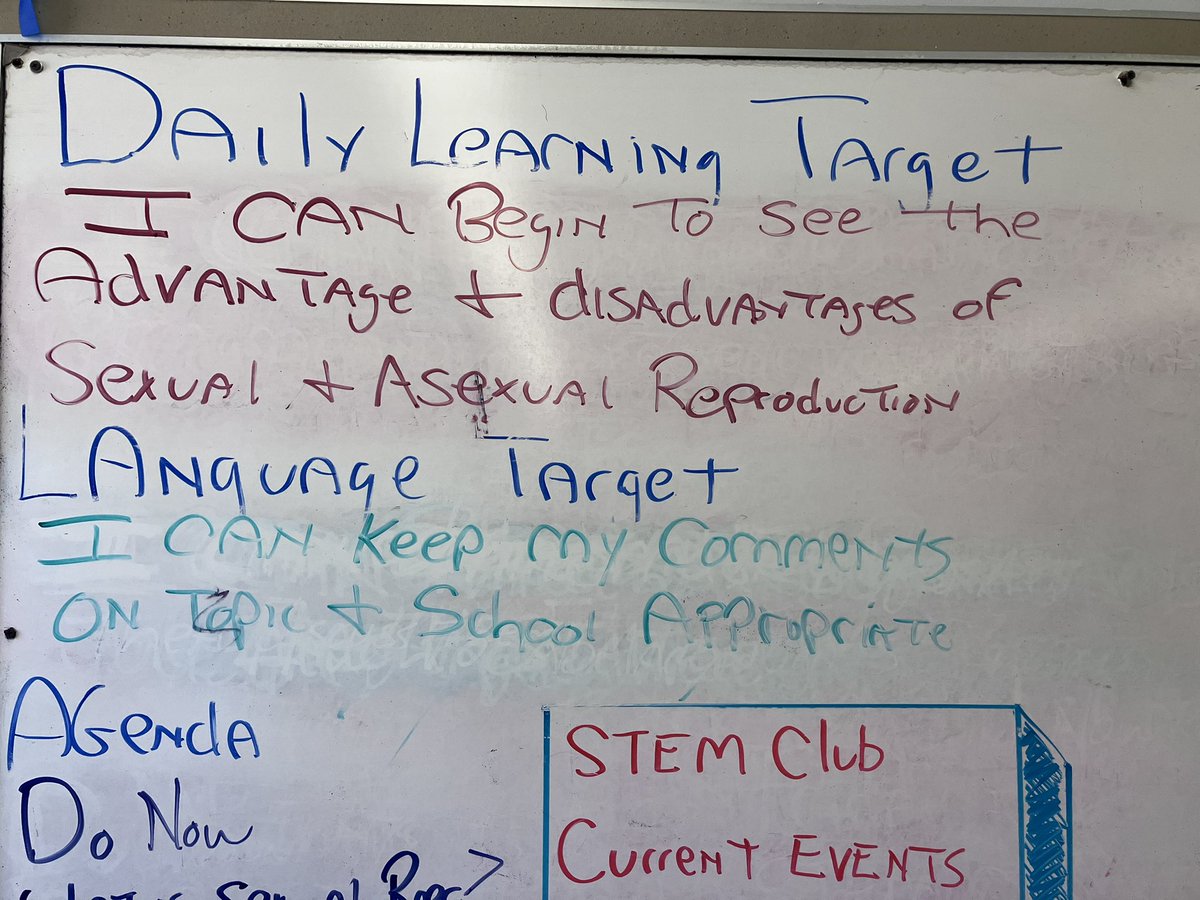 Daily Learning Target
I CAN Begin To see the
AdvANTAge + disAdvANTAges of
Sexual + Asexual Reproduction
LANguAge TArget
I CAN Keep my Comments
ON Topic + School Appropriate
AGendA
Do Now
STEM Club
Current EVENTS